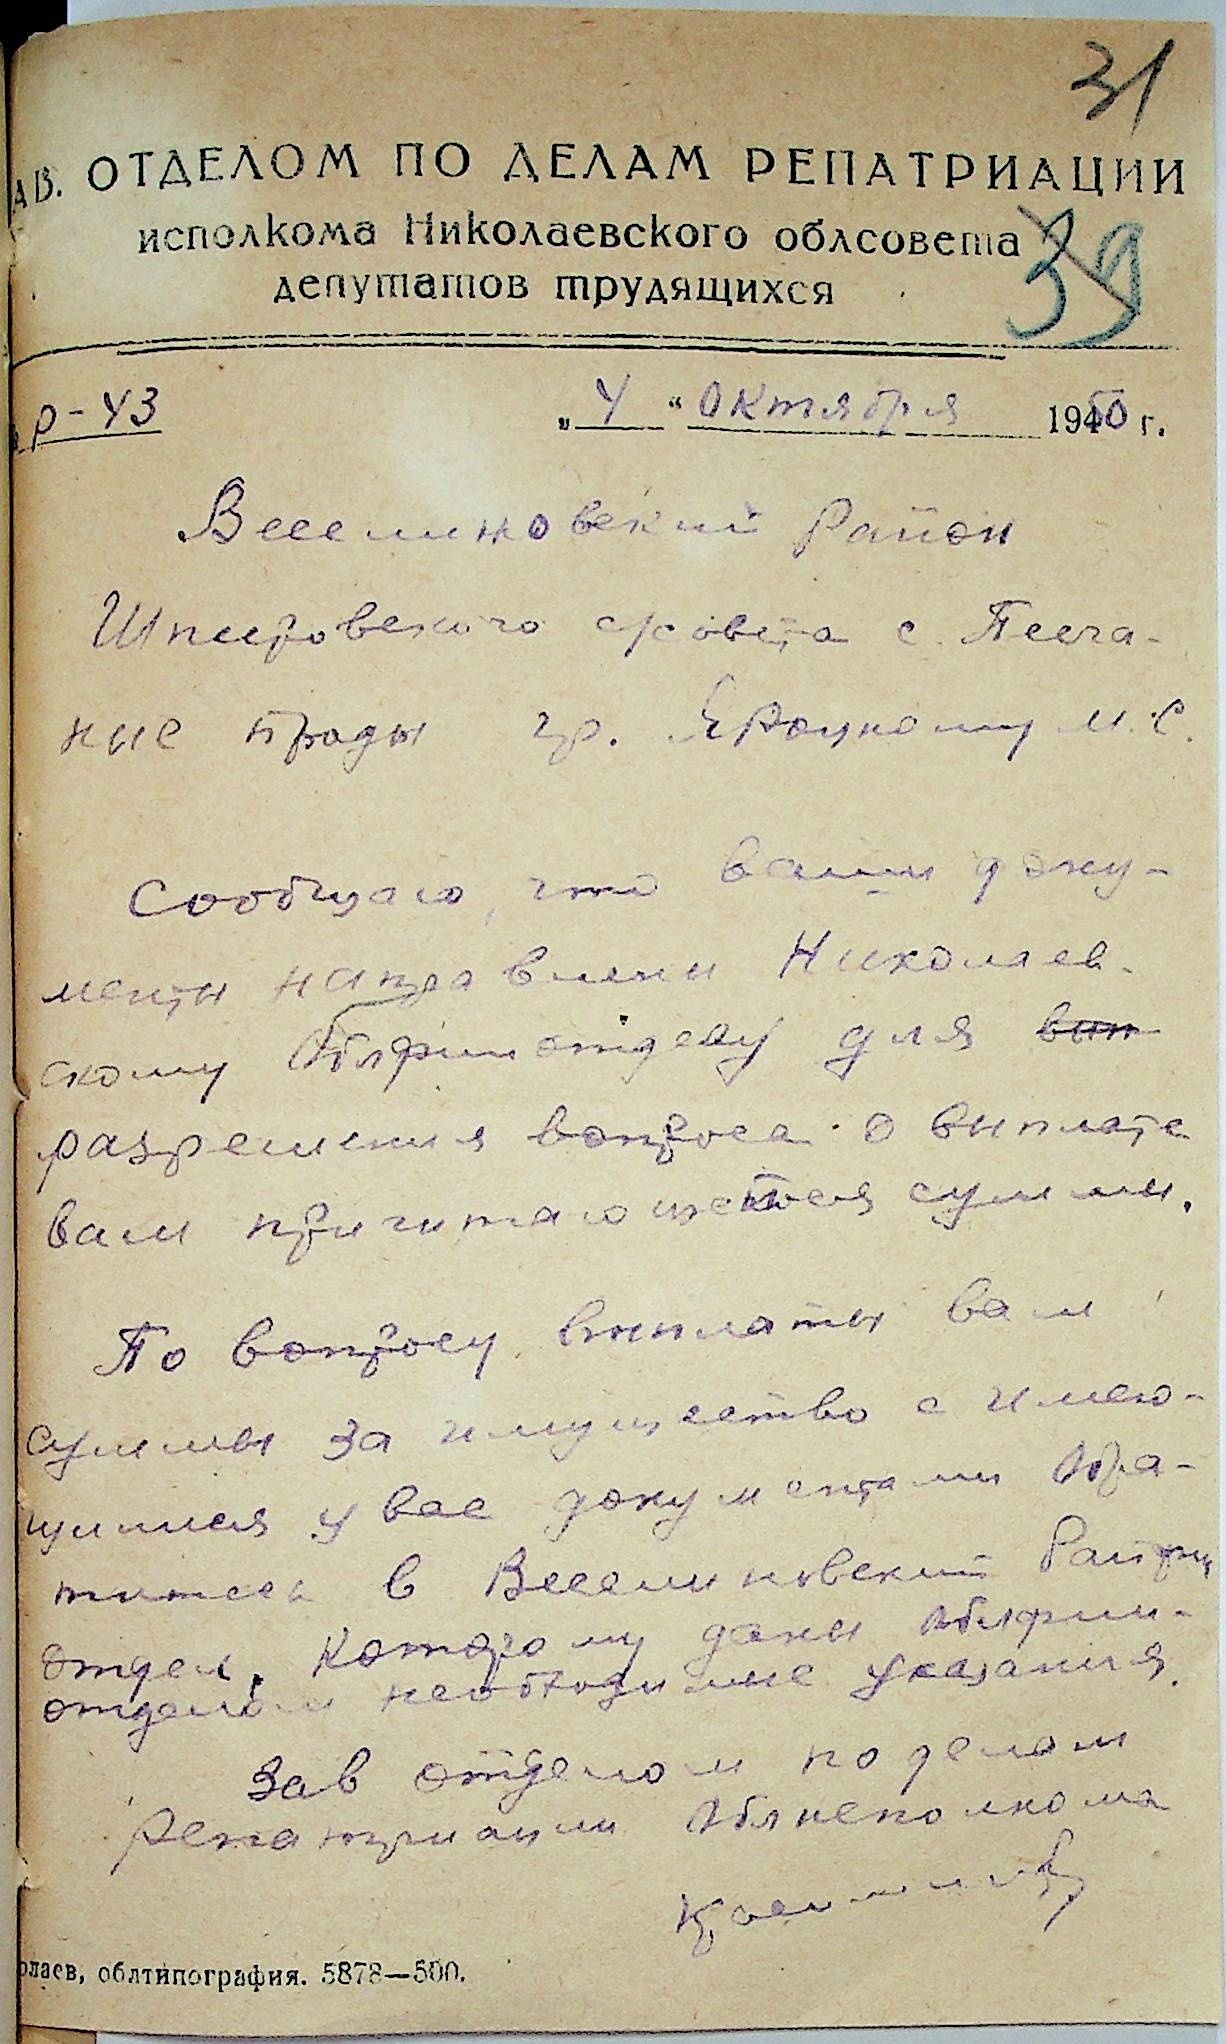 31
АВ. ОТДЕЛОМ ПО ДЕЛАМ РЕПАТРИАЦИИ
исполкома Николаевского облсовета
депутатов трудящихся
39
р-43
„4“ Октября 1950 г.
Веселиновский Район
с/совета с. Песча-
ные Броды гр. М.С.
Сообщаю, что ваши доку-
менты направлены Николаев-
скому Облфинотделу для вып
разрешения вопроса о выплате
вам причитающейся суммы.
По вопросу выплаты вам
суммы за имущество с имею-
щимися у вас документами обра-
титесь в Веселиновский Райфин
отдел, которому даны облфин-
отделом необходимые указания.
Зав отделом по делам
Репатриации Облисполкома
олаев, облтипография. 5878—500.